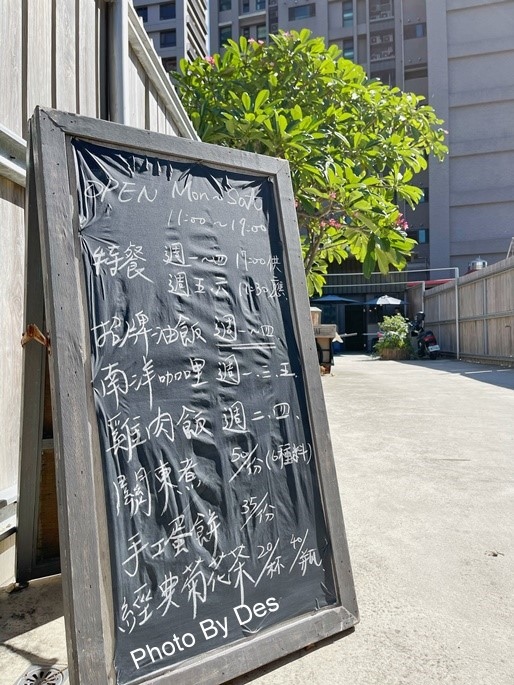 OPEN Mon~Sat
11:00~19:00
特餐 週一~四 17:00供
週五.六 11:30應
招牌油飯 週一~四
南洋咖哩 週一.三.五
雞肉飯 週二.四.
關東煮 50/份(6種料)
手工蛋餅 35/份
經典菊花茶 20/杯 40/瓶
Photo By Des